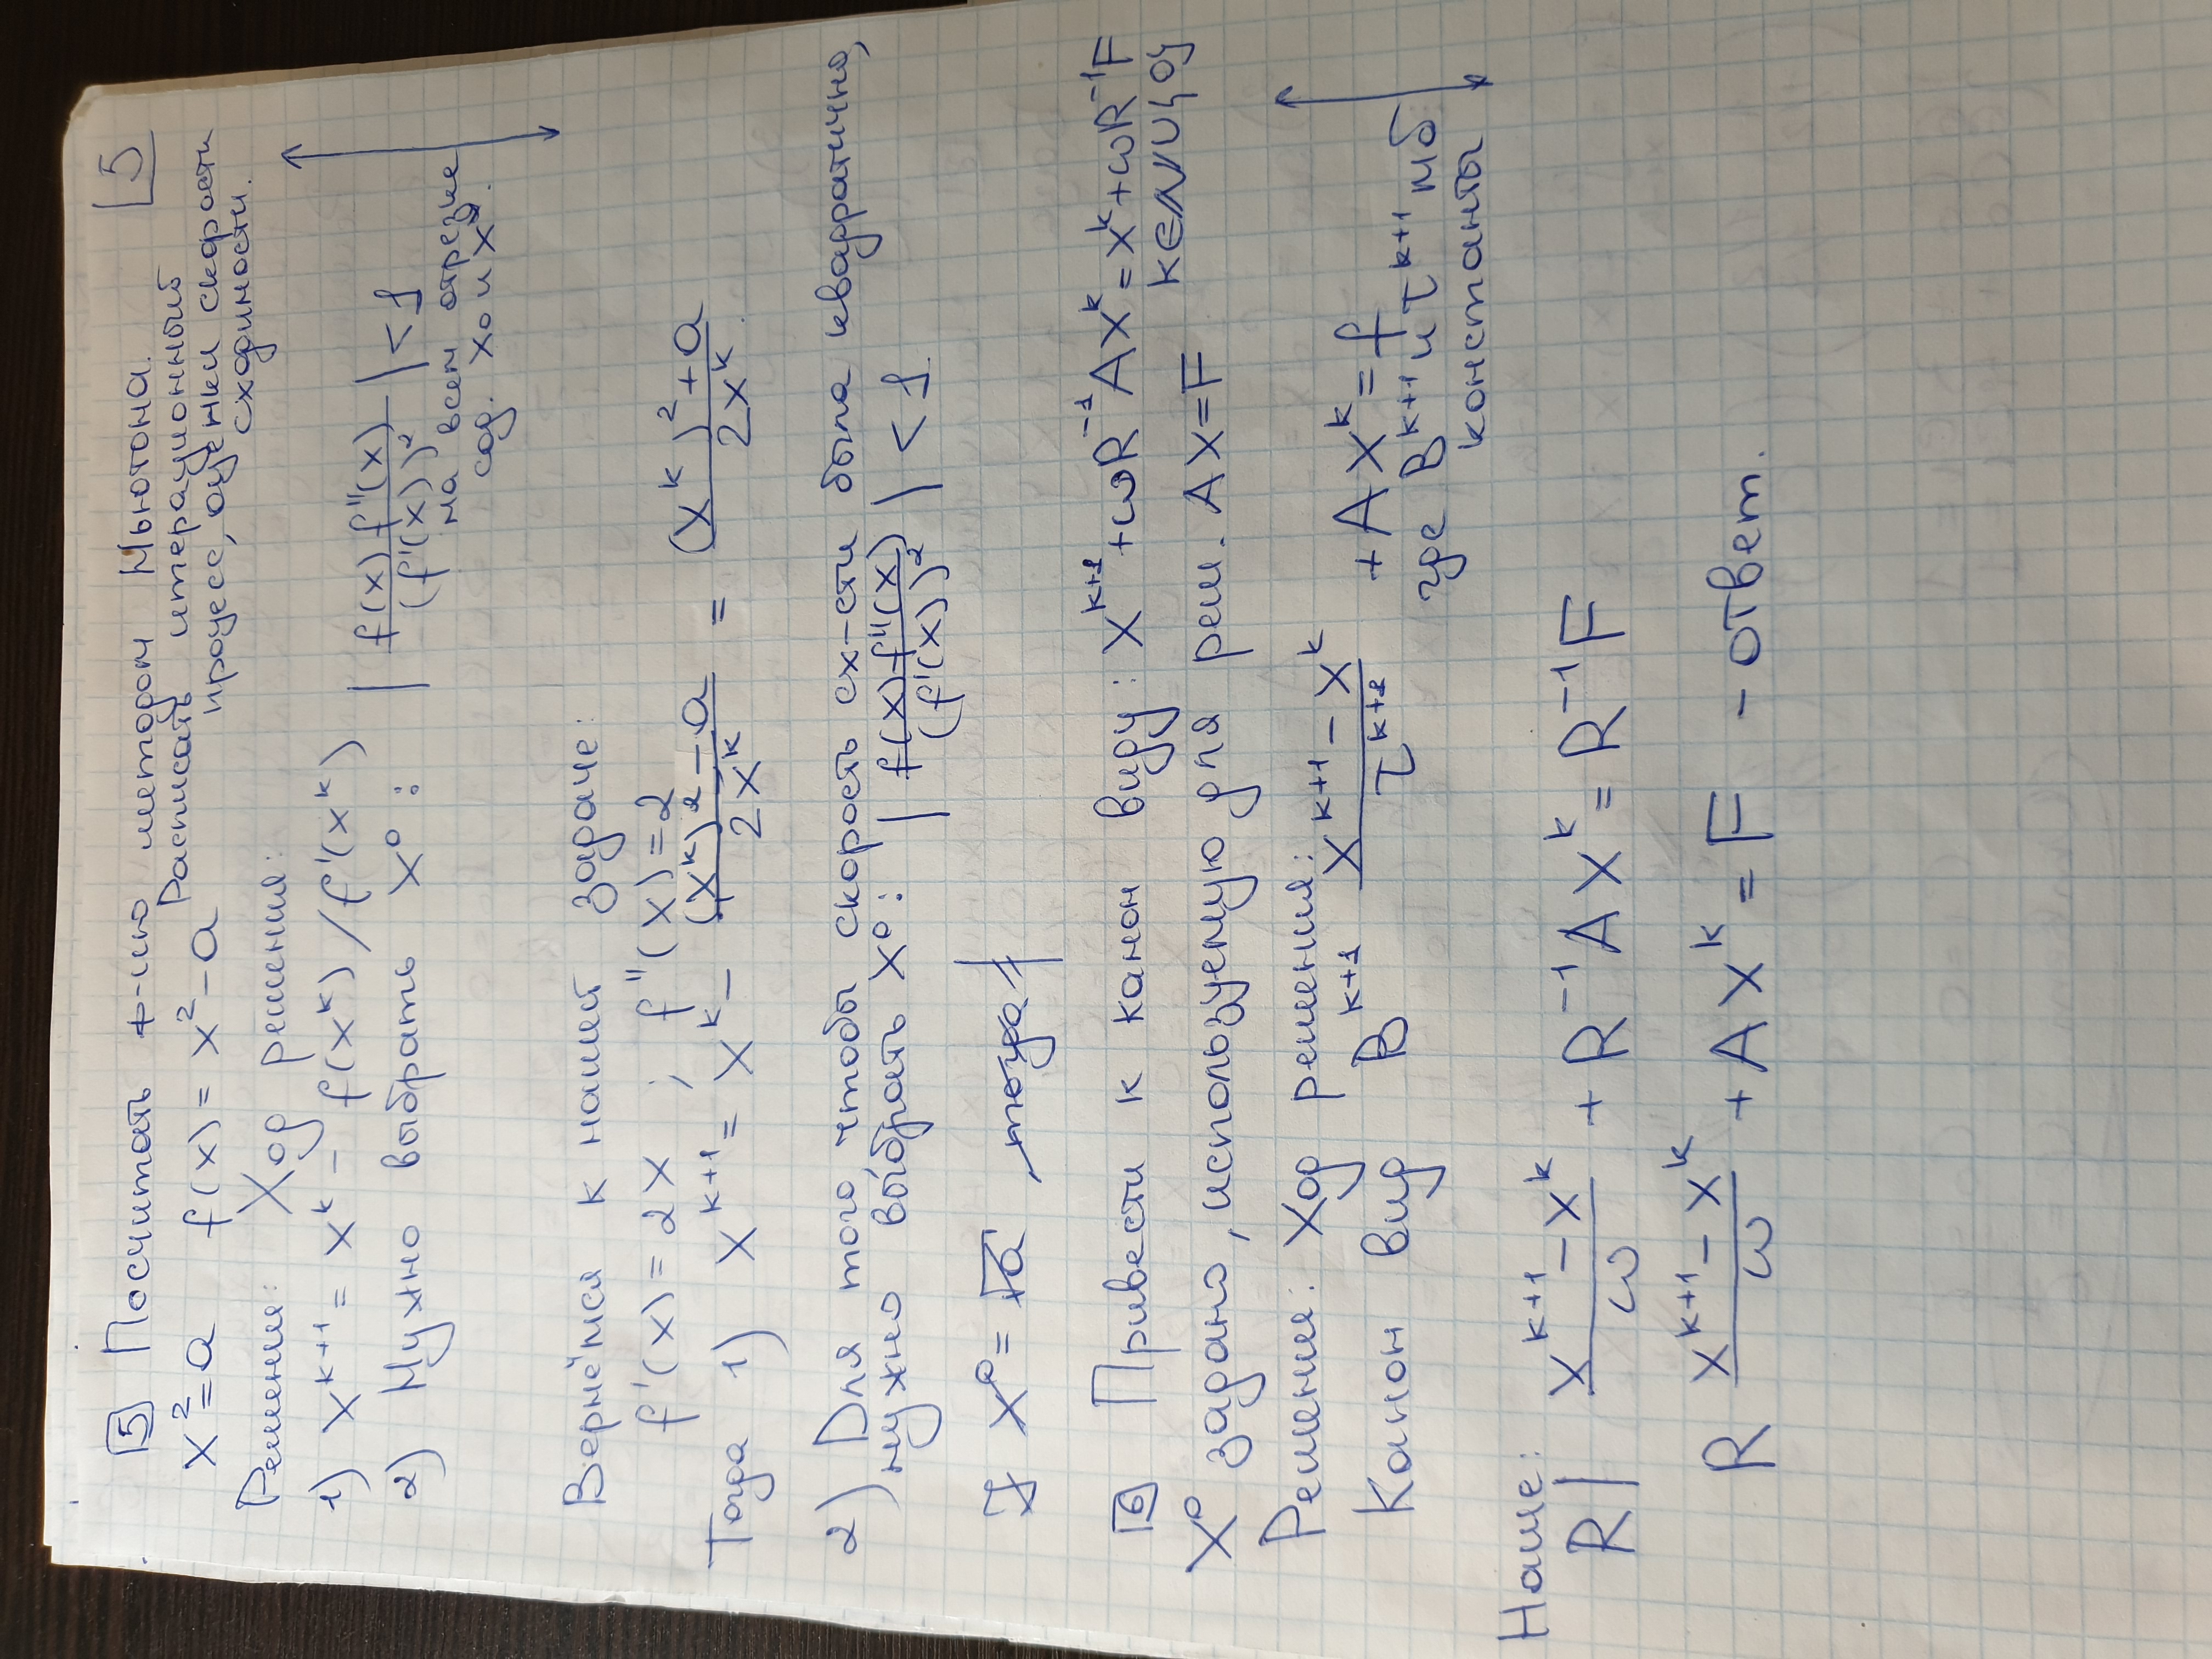 5
5 Посчитать ф-цию методом Ньютона.
x²=a f(x) = x²-a Расписать итерационный
процесс, оценки скорости
сходимости.
Решение: Ход решения:
1) x^{k+1} = x^k - f(x^k) / f'(x^k)
2) Нужно выбрать x⁰: | f(x) f''(x) / (f'(x))² | < 1
на всем отрезке
сод. x₀ и x*.
Вернёмся к нашей задаче:
f'(x) = 2x ; f''(x) = 2
Тогда 1) x^{k+1} = x^k - ((x^k)² - a) / 2x^k = ((x^k)² + a) / 2x^k.
2) Для того чтобы скорость сх-сти была квадратично,
нужно выбрать x⁰: | f(x) f''(x) / (f'(x))² | < 1.
x⁰ = √a тогда
6 Привести к канон виду: x^{k+1} + ωR⁻¹Ax^k = x^k + ωR⁻¹F
x⁰ задано, используемую для реш. Ax=F
Решение: Ход решения:
Канон вид B^{k+1} (x^{k+1} - x^k) / τ^{k+1} + Ax^k = f
где B^{k+1} и τ^{k+1} мб
константы
Наше:
R | (x^{k+1} - x^k) / ω + R⁻¹Ax^k = R⁻¹F
R (x^{k+1} - x^k) / ω + Ax^k = F - ответ.